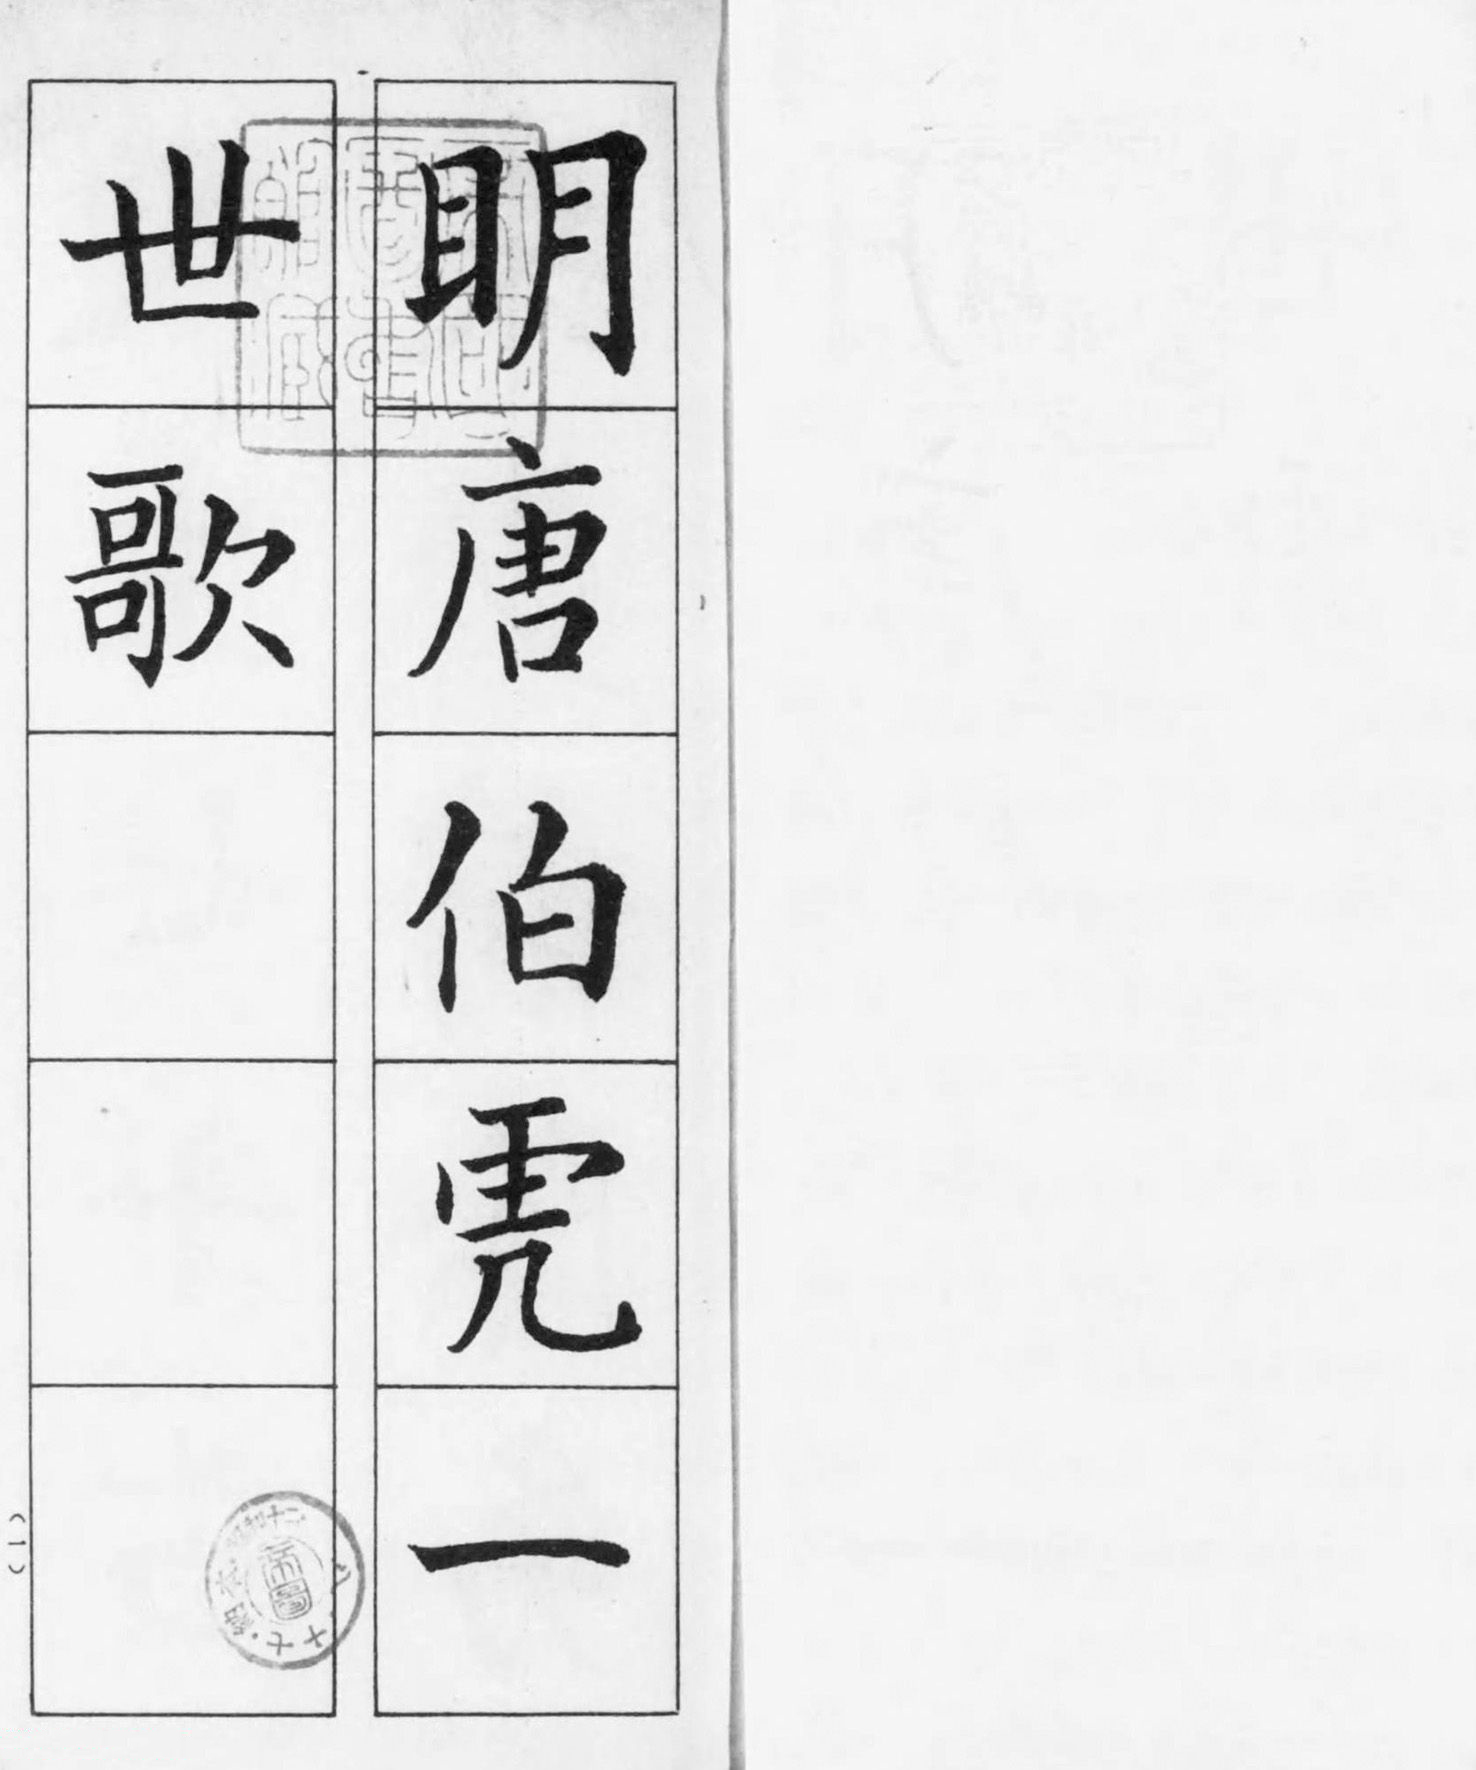 明唐伯虎一
世歌
(1)